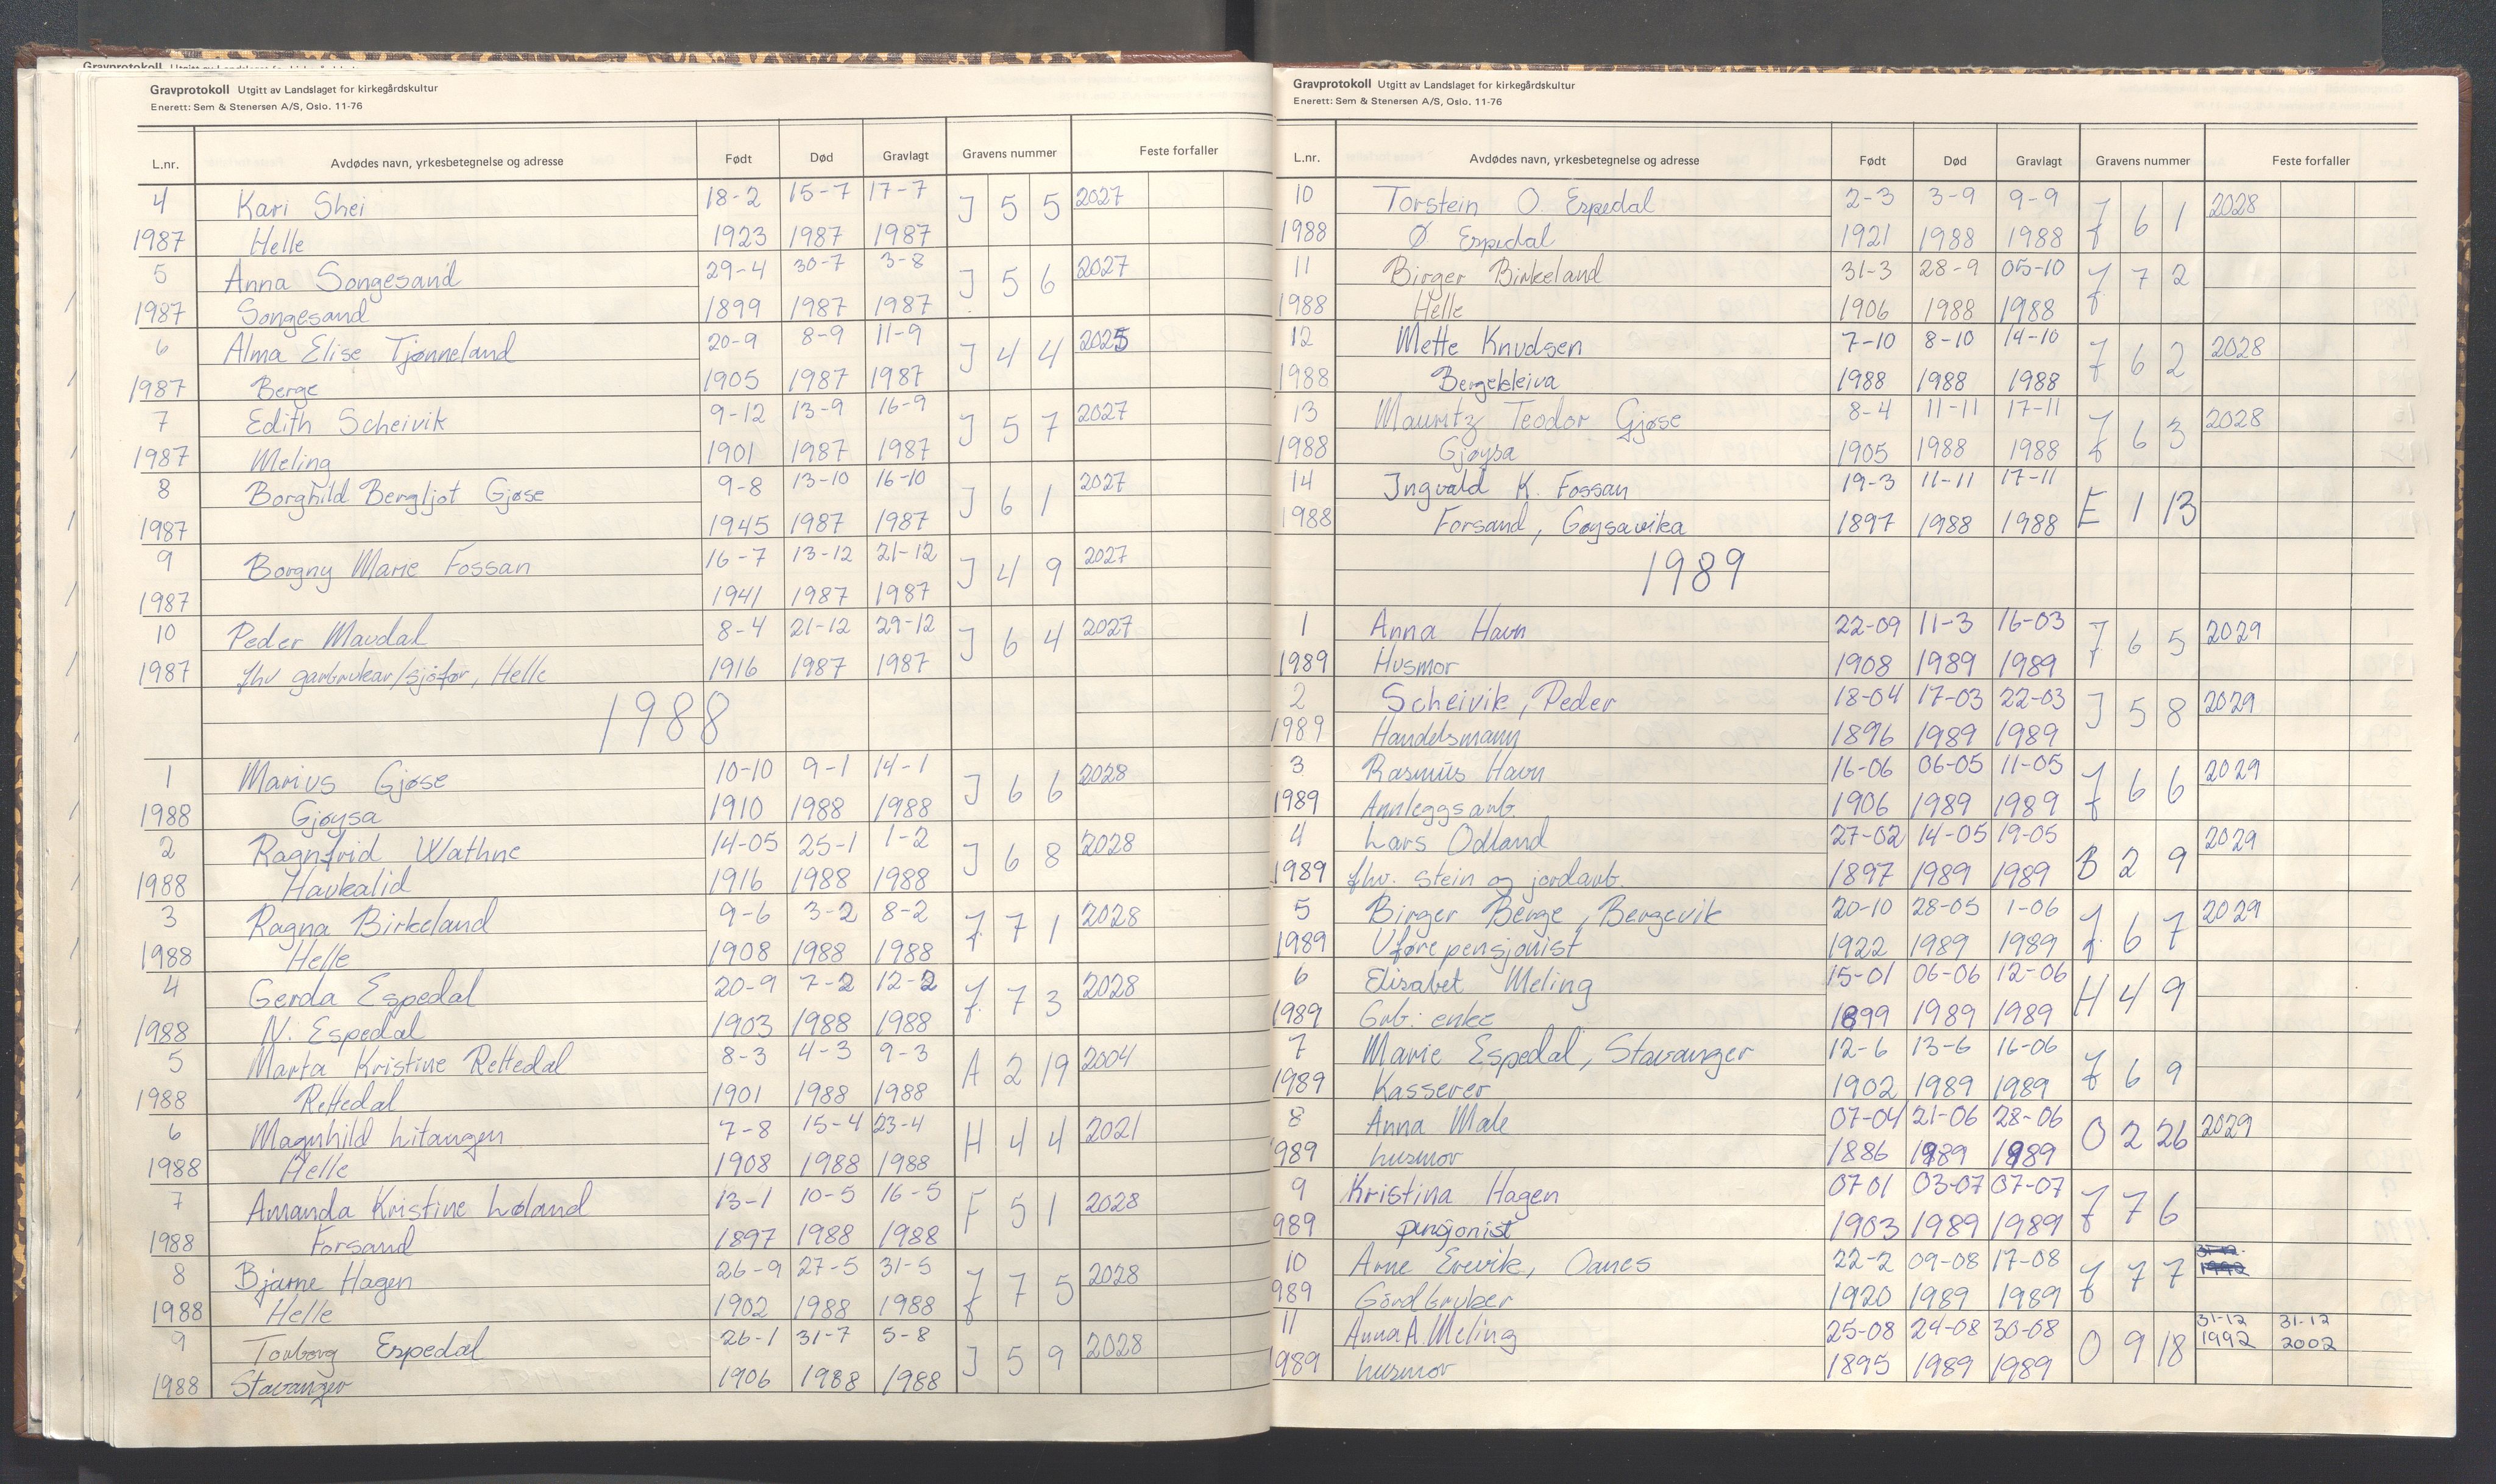 Gravprotokoll Utgitt av Landslaget for kirkegårdskultur
Enerett: Sem & Stenersen A/S, Oslo. 11-76
L.nr. Avdødes navn, yrkesbetegnelse og adresse Født Død Gravlagt Gravens nummer Feste forfaller
4 Kari Shei 18-2 15-7 17-7 J 5 5 2027
1987 Helle 1923 1987 1987
5 Anna Songesand 29-4 30-7 3-8 J 5 6 2027
1987 Songesand 1899 1987 1987
6 Alma Elise Tjønneland 20-9 8-9 11-9 J 4 4 2025
1987 Berge 1905 1987 1987
7 Edith Scheivik 9-12 13-9 16-9 J 5 7 2027
1987 Meling 1901 1987 1987
8 Borghild Bergljot Gjøse 9-8 13-10 16-10 J 6 1 2027
1987 1945 1987 1987
9 Borgny Marie Fossan 16-7 13-12 21-12 J 4 9 2027
1987 1941 1987 1987
10 Peder Maudal 8-4 21-12 29-12 J 6 4 2027
1987 fhv garbrukar/sjåfør, Helle 1916 1987 1987
1988
1 Marius Gjøse 10-10 9-1 14-1 J 6 6 2028
1988 Gjøysa 1910 1988 1988
2 Ragnfrid Wathne 14-05 25-1 1-2 J 6 8 2028
1988 Haukalid 1916 1988 1988
3 Ragna Birkeland 9-6 3-2 8-2 J 7 1 2028
1988 Helle 1908 1988 1988
4 Gerda Espedal 20-9 7-2 12-2 J 7 3 2028
1988 N. Espedal 1903 1988 1988
5 Marta Kristine Rettedal 8-3 4-3 9-3 A 2 19 2004
1988 Rettedal 1901 1988 1988
6 Magnhild Litangen 7-8 15-4 23-4 H 4 4 2021
1988 Helle 1908 1988 1988
7 Amanda Kristine Løland 13-1 10-5 16-5 F 5 1 2028
1988 Forsand 1897 1988 1988
8 Bjarne Hagen 26-9 27-5 31-5 J 7 5 2028
1988 Helle 1902 1988 1988
9 Torborg Espedal 26-1 31-7 5-8 J 5 9 2028
1988 Stavanger 1906 1988 1988
Gravprotokoll Utgitt av Landslaget for kirkegårdskultur
Enerett: Sem & Stenersen A/S, Oslo. 11-76
L.nr. Avdødes navn, yrkesbetegnelse og adresse Født Død Gravlagt Gravens nummer Feste forfaller
10 Torstein O. Espedal 2-3 3-9 9-9 J 6 1 2028
1988 Ø Espedal 1921 1988 1988
11 Birger Birkeland 31-3 28-9 05-10 J 7 2
1988 Helle 1906 1988 1988
12 Mette Knudsen 7-10 8-10 14-10 J 6 2 2028
1988 Bergekleiva 1988 1988 1988
13 Mauritz Teodor Gjøse 8-4 11-11 17-11 J 6 3 2028
1988 Gjøysa 1905 1988 1988
14 Ingvald K. Fossan 19-3 11-11 17-11 E 1 13
1988 Forsand, Gøysavika 1897 1988 1988
1989
1 Anna Havn 22-09 11-3 16-03 J 6 5 2029
1989 Husmor 1908 1989 1989
2 Scheivik, Peder 18-04 17-03 22-03 J 5 8 2029
1989 Handelsmann 1896 1989 1989
3 Rasmus Havn 16-06 06-05 11-05 J 6 6 2029
1989 Annleggsarb. 1906 1989 1989
4 Lars Odland 27-02 14-05 19-05 B 2 9 2029
1989 fhv. stein og jordarb. 1897 1989 1989
5 Birger Berge, Bergevik 20-10 28-05 1-06 J 6 7 2029
1989 Uførepensjonist 1922 1989 1989
6 Elisabet Meling 15-01 06-06 12-06 H 4 9
1989 Grb: enke 1899 1989 1989
7 Marie Espedal, Stavanger 12-6 13-6 16-06 J 6 9
1989 Kasserer 1902 1989 1989
8 Anna Male 07-04 21-06 28-06 O 2 26 2029
989 husmor 1886 1989 1989
9 Kristina Hagen 07 01 03-07 07-07 J 7 6
989 pensjonist 1903 1989 1989
10 Arne Erevik, Oanes 22-2 09-08 17-08 J 7 7 31-12 1992
989 Gårdbruker 1920 1989 1989
11 Anna A. Meling 25-08 24-08 30-08 O 9 18 31-12 1992 31-12 2002
989 husmor 1895 1989 1989